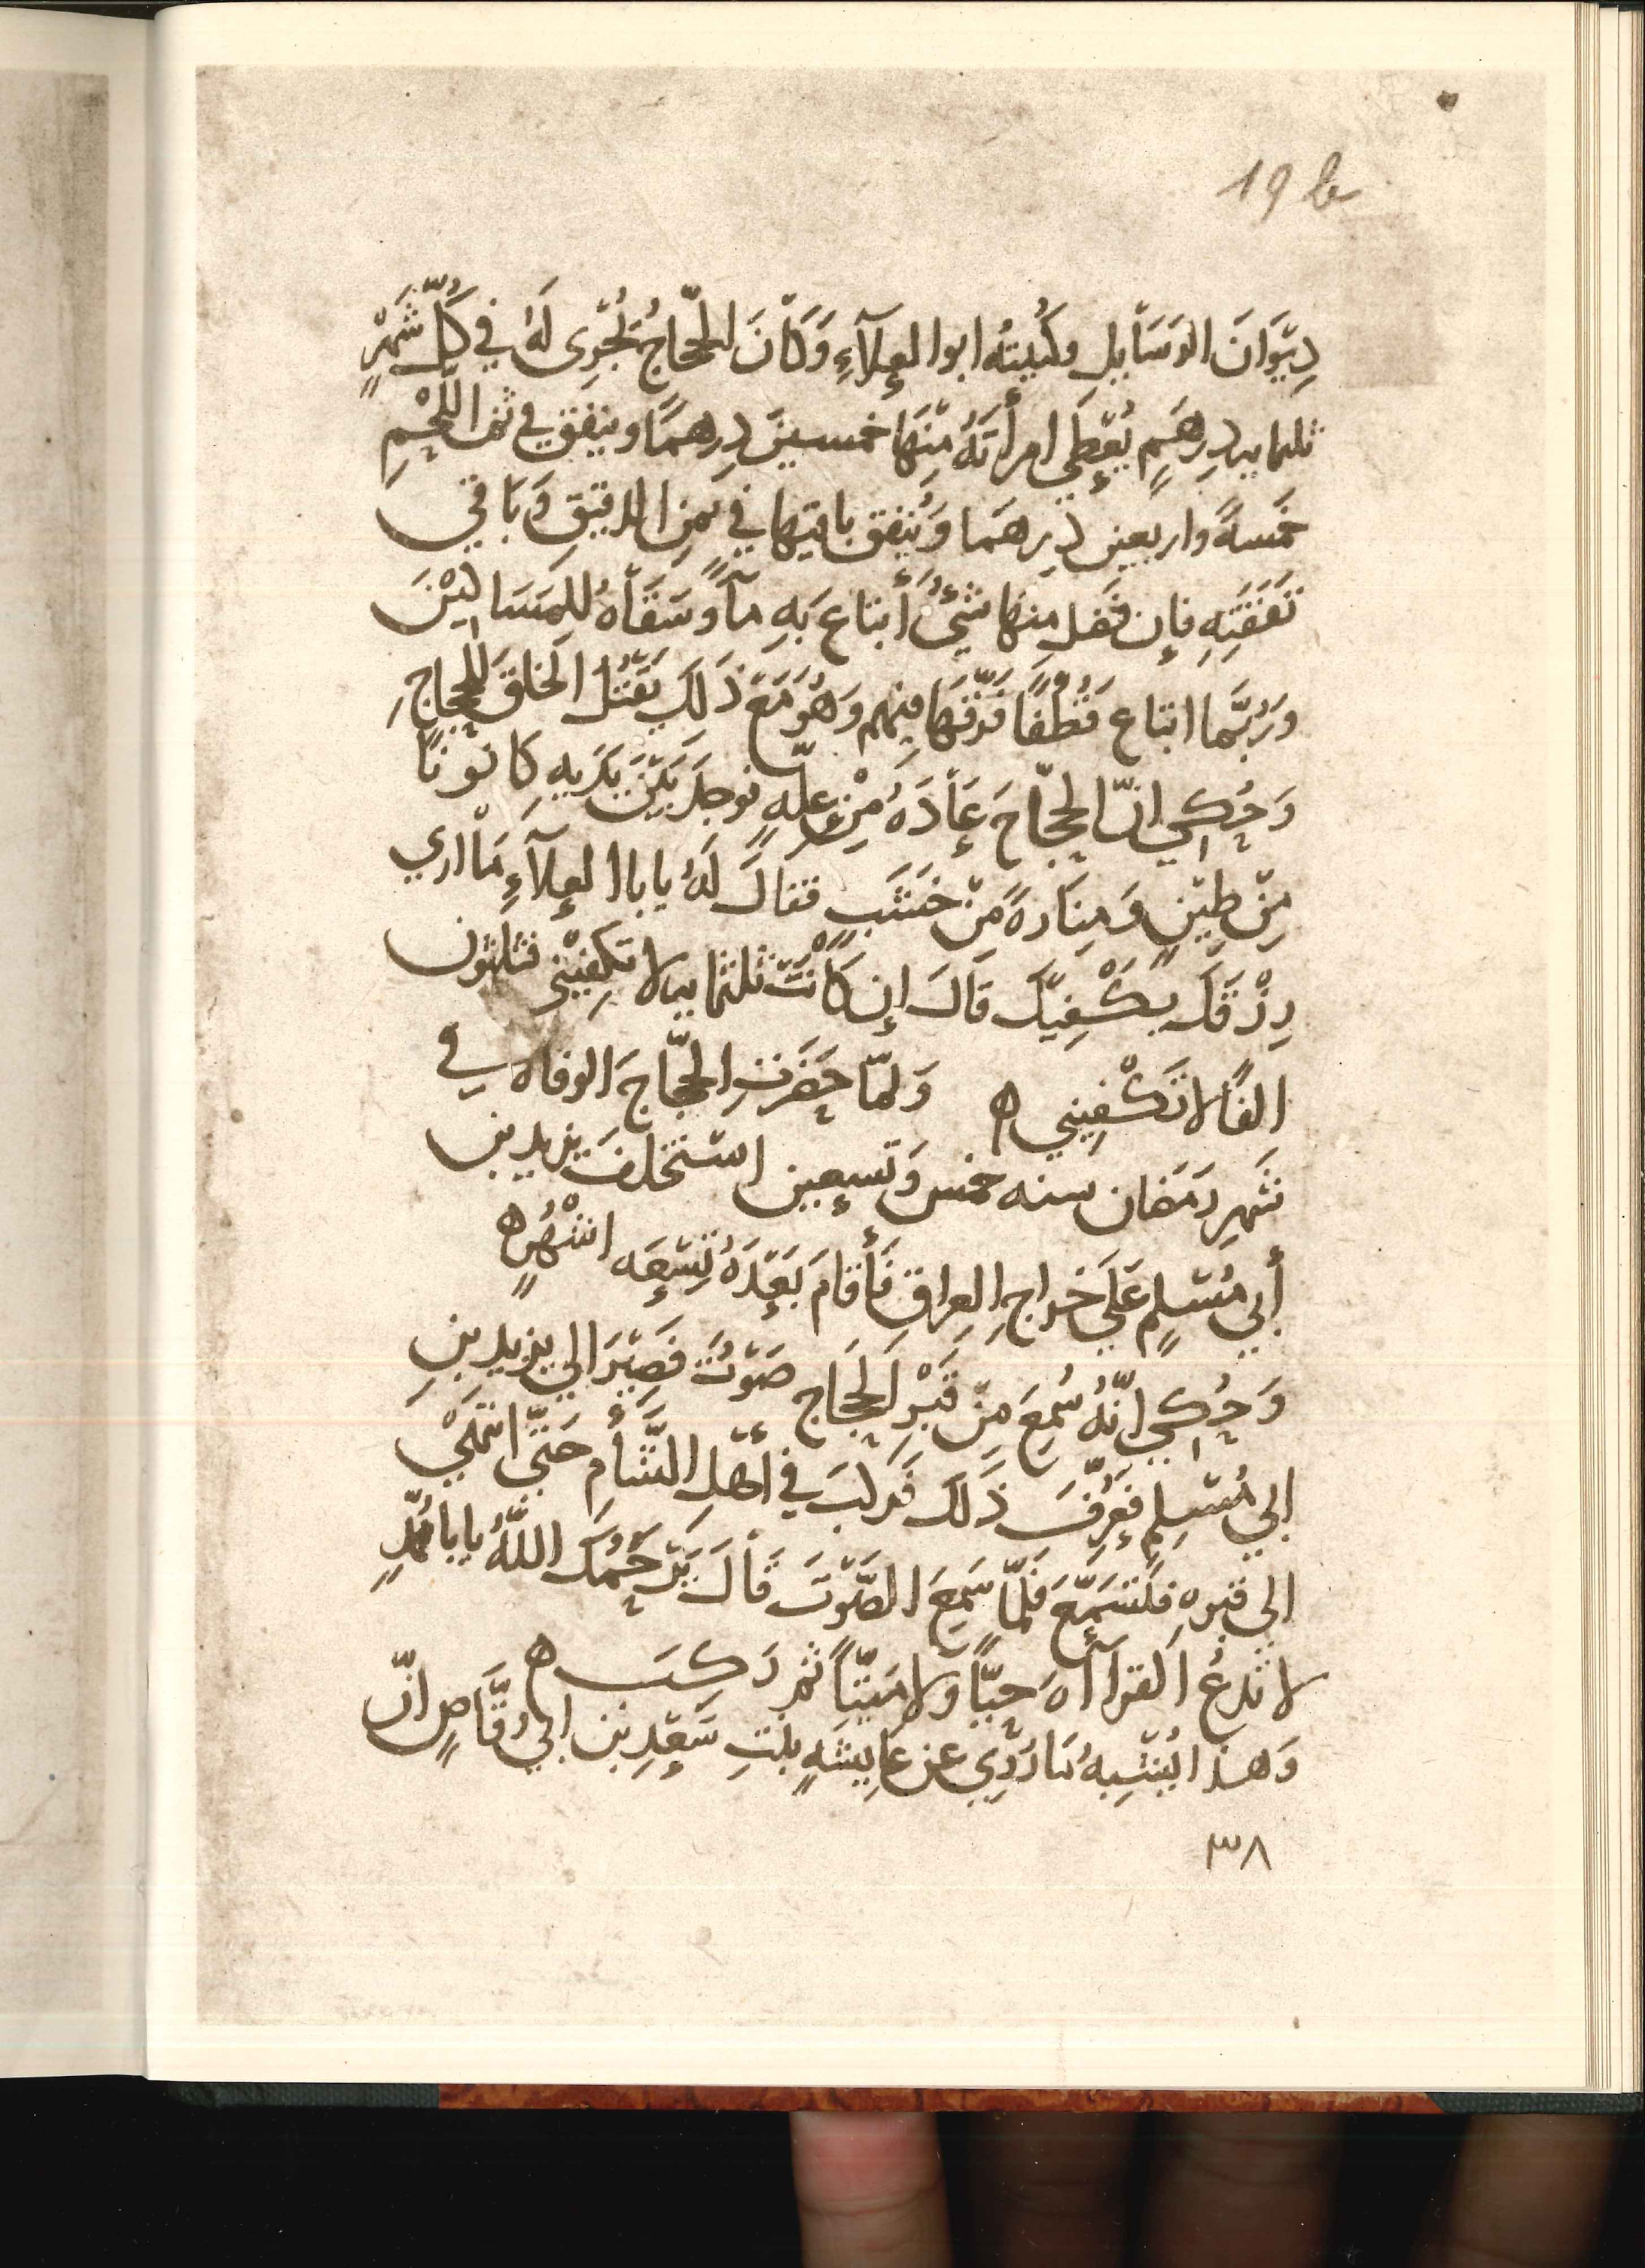 19 b
دِيْوَانَ الرَسَايِلِ وكُنيتُه ابوا العِلَآءِ وَكَانَ الحجّاجُ تُجْرِى لَهُ في كُلّ شَهْرٍ
ثلثمايه دِرهَمٍ يُعْطي امرأتَهُ مِنْهَا خمسينَ دِرهمًا وينفق في ثمن اللّحْمِ
خَمسةً واربعين دِرهَمًا وَيُنفِق باقيها في ثمنِ الدقيقِ وَبَاقي
نَفَقَتِهِ فإن فَضَل منها شَيْءٌ أبتاع بَهِ مآءً وسَقَاهُ للمَسَاكيْنَ
ورُبَّما ابتاع قُطُفًا ففرَّقَهَا فيهم وَهُوَ مَعَ ذَلِكَ يَقْتُل الخلقَ للحجاجِ
وَحُكِي انّ الحجّاجَ عَادَهُ مِنْ عِلّهٍ فوجدَ بَيْنَ يَدَيهِ كانونًا
مِنْ طِيْنٍ وَمِنَارهً مِنْ خشَبٍ فقال لَهُ يابا العِلآءِ مَا اري
رِزْقَك يكْفِيْكَ قَالَ إن كَانْتَ ثلثمايه لا تكفِيْني فثلثون
الفًا لا تَكْفِيني ه وَلمّا حَضَرتِ الحجّاجَ الوفاه في
شَهرِ رمَضان سنه خمس وَتسعين استخلفَ يزيد بن
أبي مُسْلِمٍ عَلَي خراجِ العِراقِ فَأقامَ بَعْدَهُ تِسْعَه اشْهُرٍ ه
وَحُكِي انّهُ سُمِعَ مِنْ قَبْرِ الحَجَاج صَوْتُ فَصِيْرَ الي يزيد بنِ
ابي مُسْلِمٍ فعُرِّفَ ذَلك فركبَ في أهْلِ الشَّأمِ حَتَّي انتهَيْ
الي قبره فتسَمَّعَ فلمّا سَمِعَ الصَوْتَ قَالَ يَرْحَمُكَ اللّهُ يابا مُحَمّدٍ
لا تَدعُ القرآأهَ حيًّا وَلا مَيّتًا ثمر رَكِبَ ه
وَهذا يُشْبِهُ مَا رُوِّي عن عَايِشَهٍ بنْتِ سَعْدِ بن ابي وَقَّاصٍ انّ
٣٨